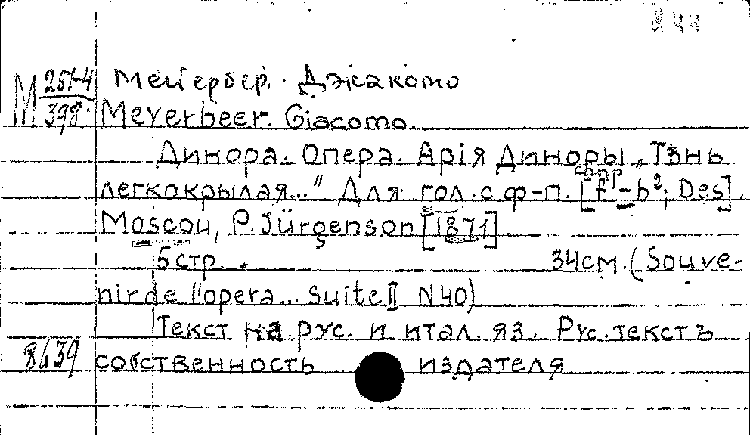 М 251-4 Мейербер. Джакомо
398 Meyerbeer. Giacomo
Динора. Опера. Арія Диноры „Тѣнь
легкокрылая..." Для гол. с ф-п. [f¹-b²; Des].
Moscou, P. Jürgenson [1871]
5 стр. 34 см. (Souve-
nir de l'opera... Suite II N 40)
Текст на рус. и итал. яз. Рус. текстъ
8639 собственность издателя